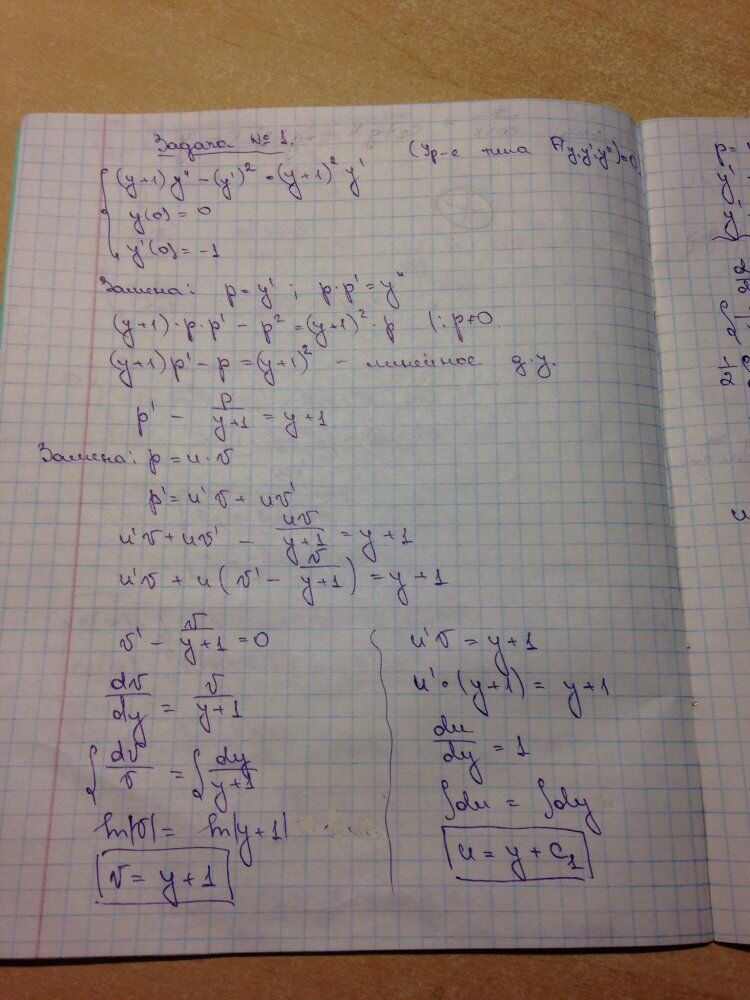 Задача № 1. (Ур-е типа F(y·y'·y'')=0
(y+1) y'' - (y')² = (y+1)² y'
y(0) = 0
y'(0) = -1
Замена: p = y' ; p·p' = y''
(y+1)·p·p' - p² = (y+1)²·p |: p≠0.
(y+1)p' - p = (y+1)² - линейное д.у.
p' - p/(y+1) = y+1
Замена: p = u·v
p' = u'v + uv'
u'v + uv' - uv/(y+1) = y+1
u'v + u(v' - v/(y+1)) = y+1
v' - v/(y+1) = 0
dv/dy = v/(y+1)
∫ dv/v = ∫ dy/(y+1)
ln|v| = ln|y+1|
v = y+1
u'v = y+1
u'·(y+1) = y+1
du/dy = 1
∫du = ∫dy
u = y + C₁
p =
y'